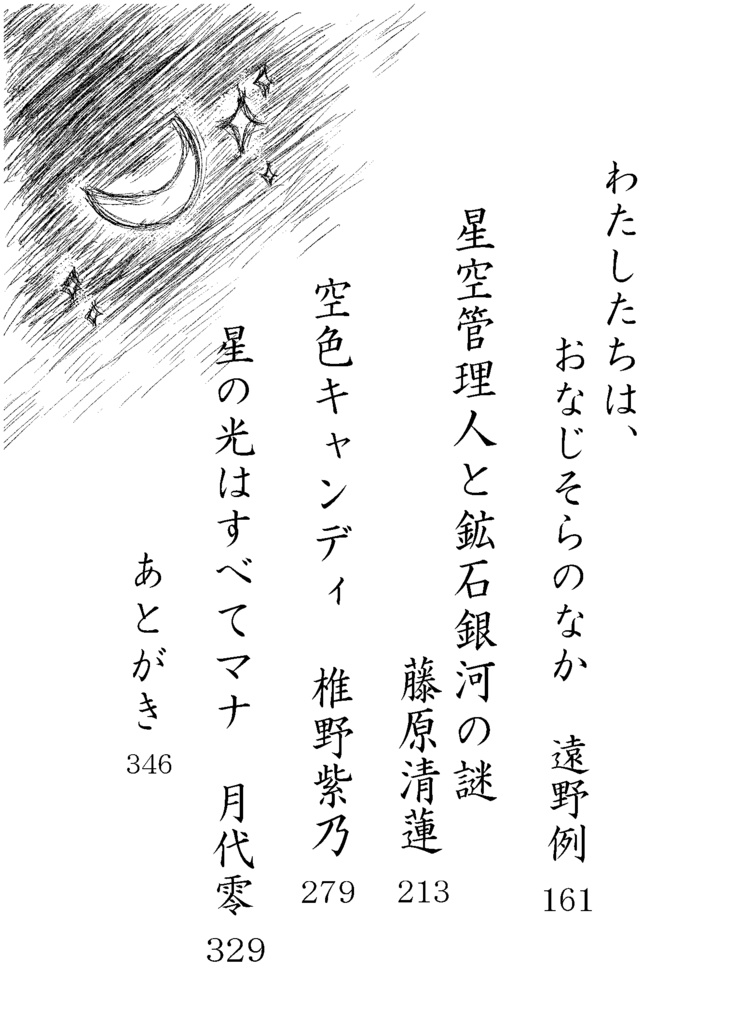 わたしたちは、
おなじそらのなか　遠野例
161
星空管理人と鉱石銀河の謎
藤原清蓮
213
空色キャンディ　椎野紫乃
279
星の光はすべてマナ　月代零
329
あとがき
346